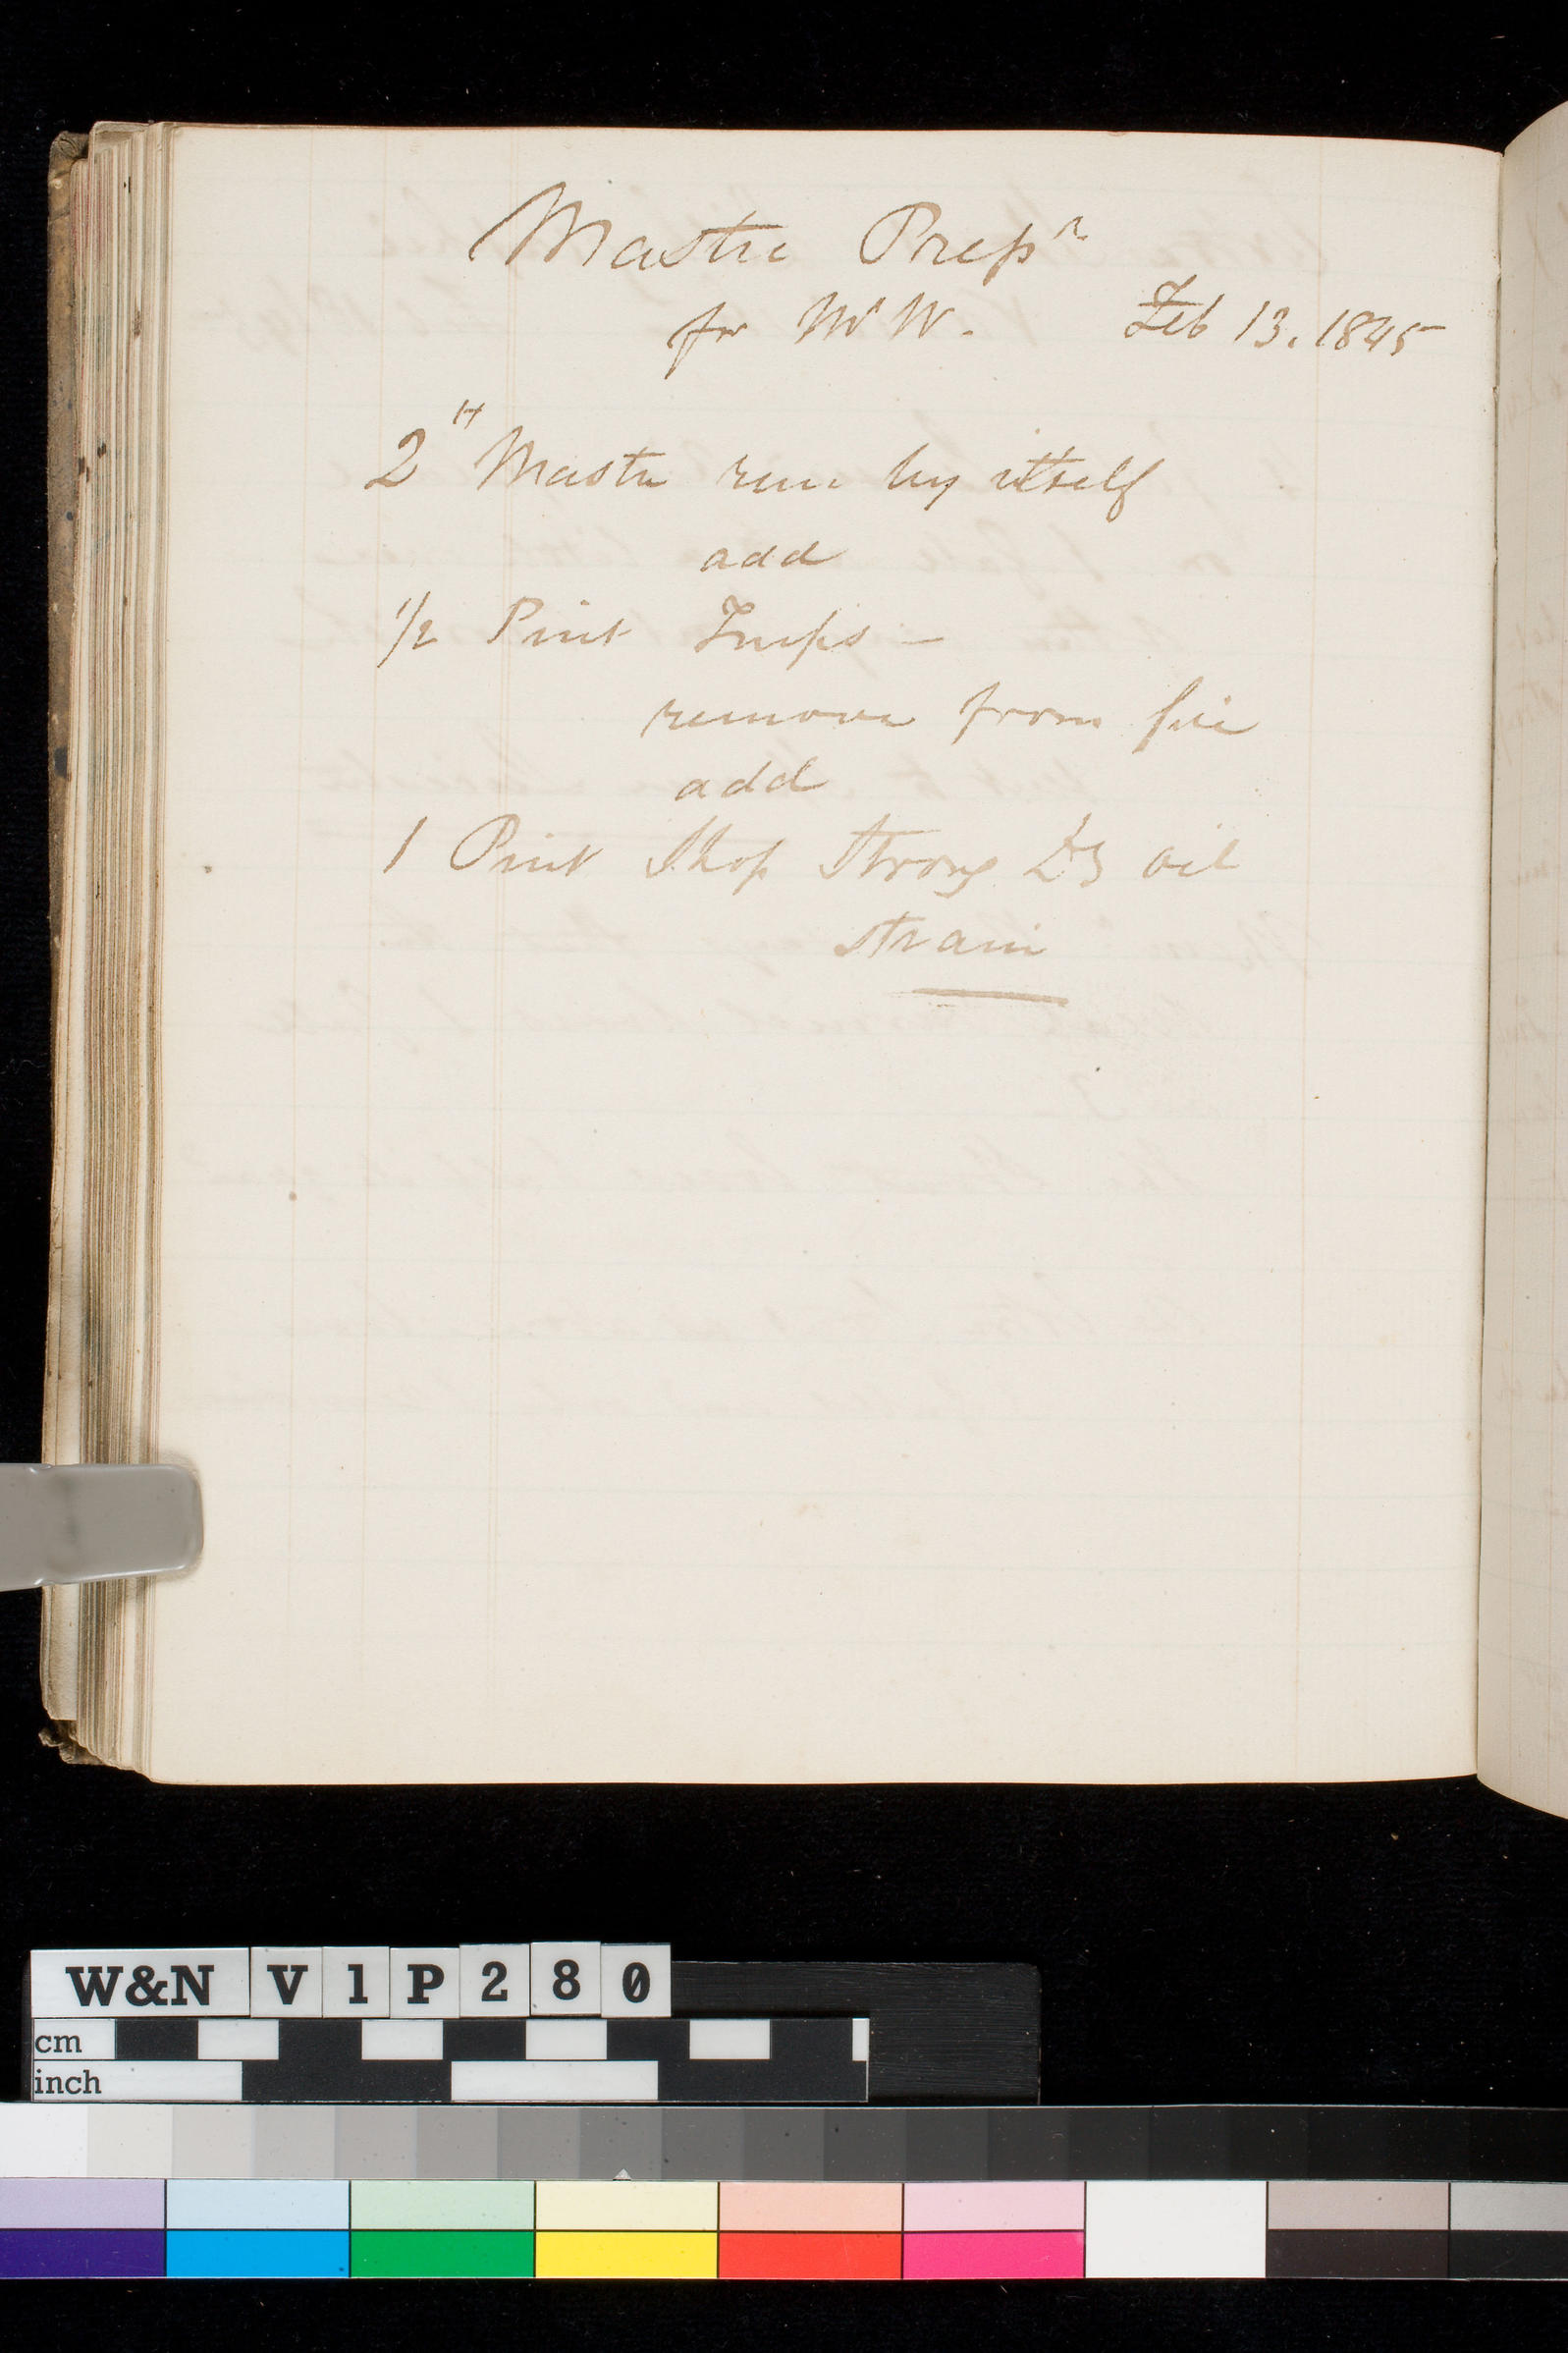 Mastic Prepn
for Mr W. Feb 13. 1845
2 lb Mastic run by itself
add
1/2 Pint Turps —
remove from fire
add
1 Pint Shop Strong oil
strain
W&N V1P280
cm
inch